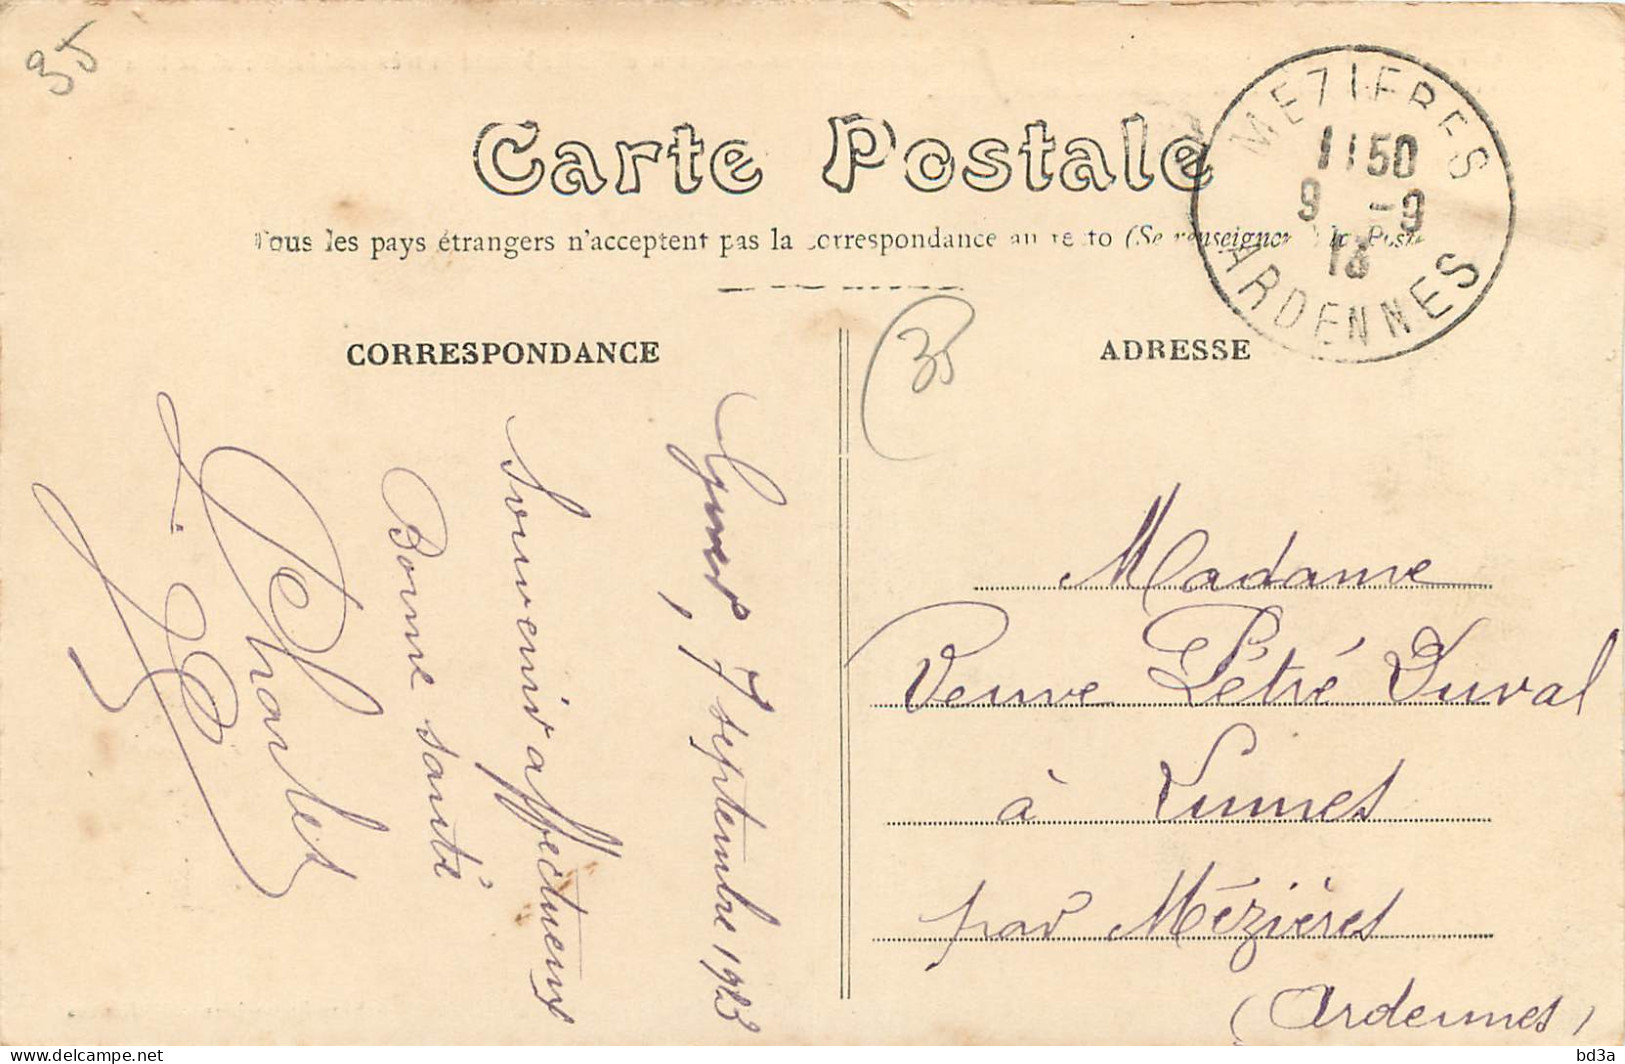 35
Carte Postale
Tous les pays étrangers n'acceptent pas la correspondance au recto (Se renseigner à la Poste
MEZIERES
11 50
9 -9
13
ARDENNES
CORRESPONDANCE
7 septembre 1913
Souvenir affectueux
Bonne santé
35
ADRESSE
Madame
Veuve Pétré Duval
à Lumes
par Mézières
(Ardennes)
delcampe.net
bd3a